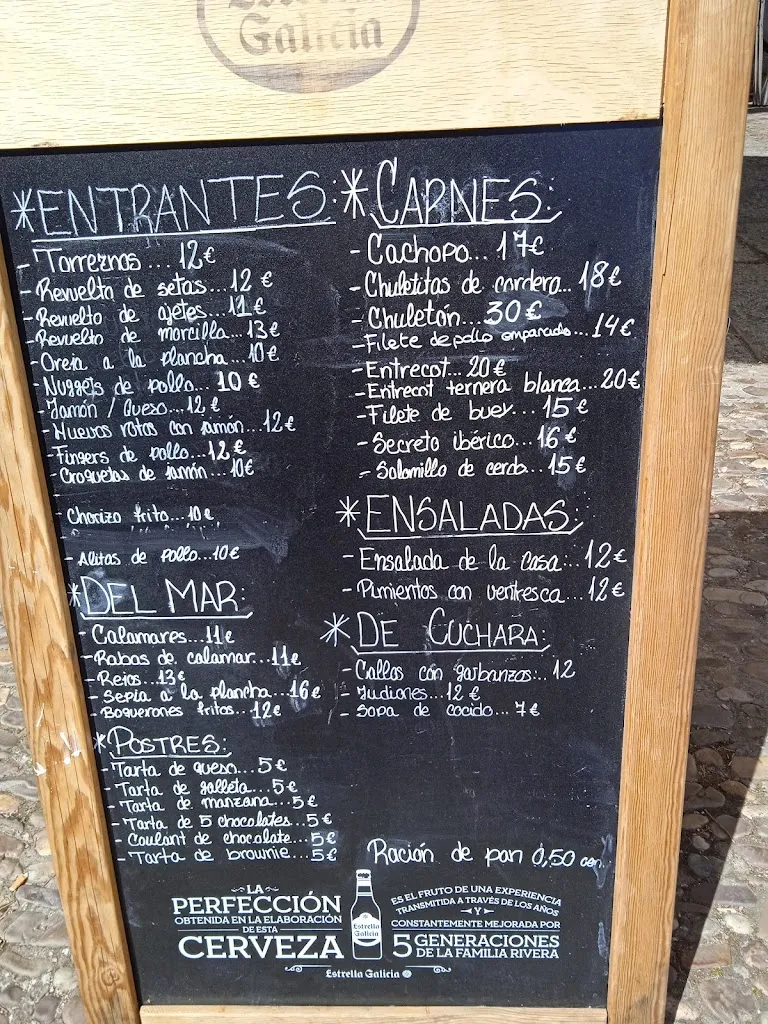 Estrella
Galicia
*ENTRANTES:
- Torreznos... 12€
- Revuelto de setas... 12 €
- Revuelto de ajetes... 12€
- Revuelto de morcilla... 13€
- Oreja a la plancha... 10€
- Nuggets de pollo... 10€
- Jamón / Queso... 12 €
- Huevos rotos con jamón... 12€
- Fingers de pollo... 12€
- Croquetas de jamón... 10€
- Chorizo frito... 10€
- Alitas de pollo... 10€
*DEL MAR:
- Calamares... 11€
- Rabas de calamar... 11€
- Rejos... 13€
- Sepia a la plancha... 16€
- Boquerones fritos... 12€
*POSTRES:
- Tarta de queso... 5€
- Tarta de galleta... 5€
- Tarta de manzana... 5€
- Tarta de 5 chocolates... 5€
- Coulant de chocolate... 5€
- Tarta de brownie... 5€
*CARNES:
- Cachopo... 17€
- Chuletitas de cordero... 18€
- Chuletón... 30€
- Filete de pollo empanado... 14€
- Entrecot... 20€
- Entrecot ternera blanca... 20€
- Filete de buey... 15€
- Secreto ibérico... 16€
- Solomillo de cerdo... 15€
*ENSALADAS:
- Ensalada de la casa... 12€
- Pimientos con ventresca... 12€
*DE CUCHARA:
- Callos con garbanzos... 12
- Judiones... 12€
- Sopa de cocido... 7€
Ración de pan 0,50 cen.
LA
PERFECCIÓN
OBTENIDA EN LA ELABORACIÓN
DE ESTA
CERVEZA
Estrella
Galicia
ES EL FRUTO DE UNA EXPERIENCIA
TRANSMITIDA A TRAVÉS DE LOS AÑOS
Y
CONSTANTEMENTE MEJORADA POR
5 GENERACIONES
DE LA FAMILIA RIVERA
Estrella Galicia